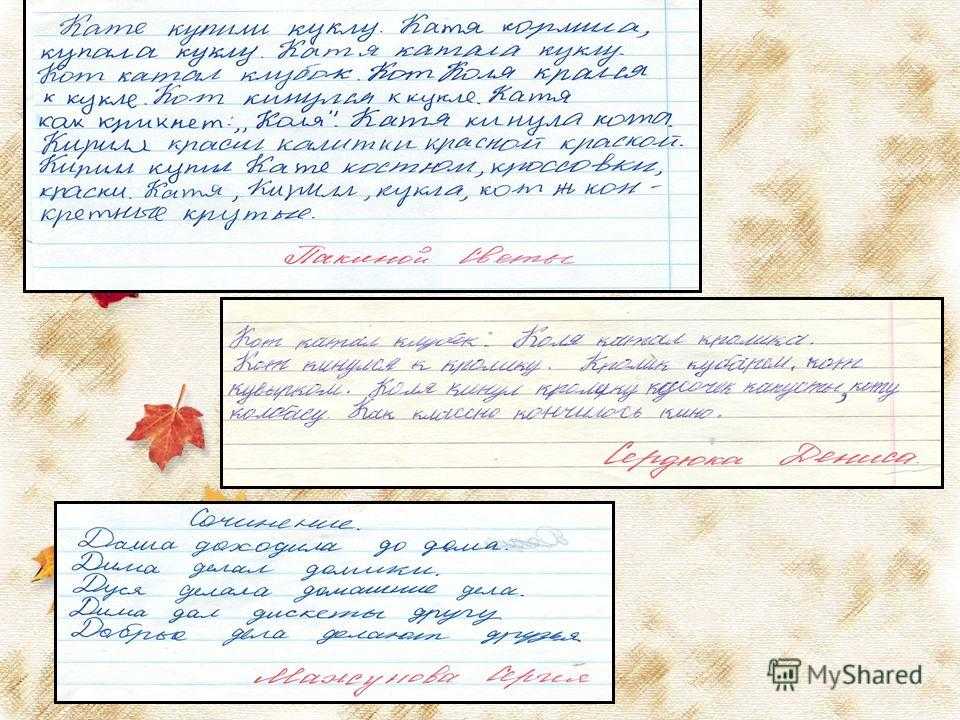 Кате купили куклу. Катя кормила,
купала куклу. Катя катала куклу.
Кот катал клубок. Кот Коля крался
к кукле. Кот кинулся к кукле. Катя
как крикнет: „Коля". Катя кинула кота.
Кирилл красил калитки красной краской.
Кирилл купил Кате костюм, кроссовки,
краски. Катя, Кирилл, кукла, кот кон-
кретные крутые.
Пакиной Светы
Кот катал клубок. Коля катал кролика.
Кот кинулся к кролику. Кролик кубарем, кот
кувырком. Коля кинул кролику кусочек капусты, коту
колбасу. Как классно кончилось кино.
Сердюка Дениса
Сочинение.
Даша доходила до дома.
Дима делал домики.
Дуся делала домашние дела.
Дима дал дискеты другу
Добрые дела делают друзья
Мажунова Сергия
MyShared